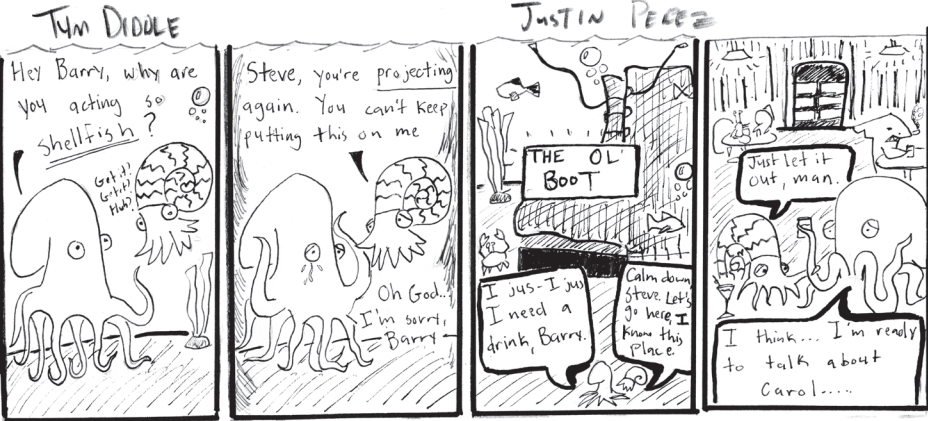 Tym Diddle
Justin Perez
Hey Barry, why are
you acting so
shellfish?
Get it?
Get it?
Huh?
Steve, you're projecting
again. You can't keep
putting this on me
Oh God...
I'm sorry,
Barry
THE OL'
BOOT
I jus-I jus
I need a
drink, Barry.
Calm down,
Steve. Let's
go here, I
know this
place.
Just let it
out, man.
I think... I'm ready
to talk about
Carol.....